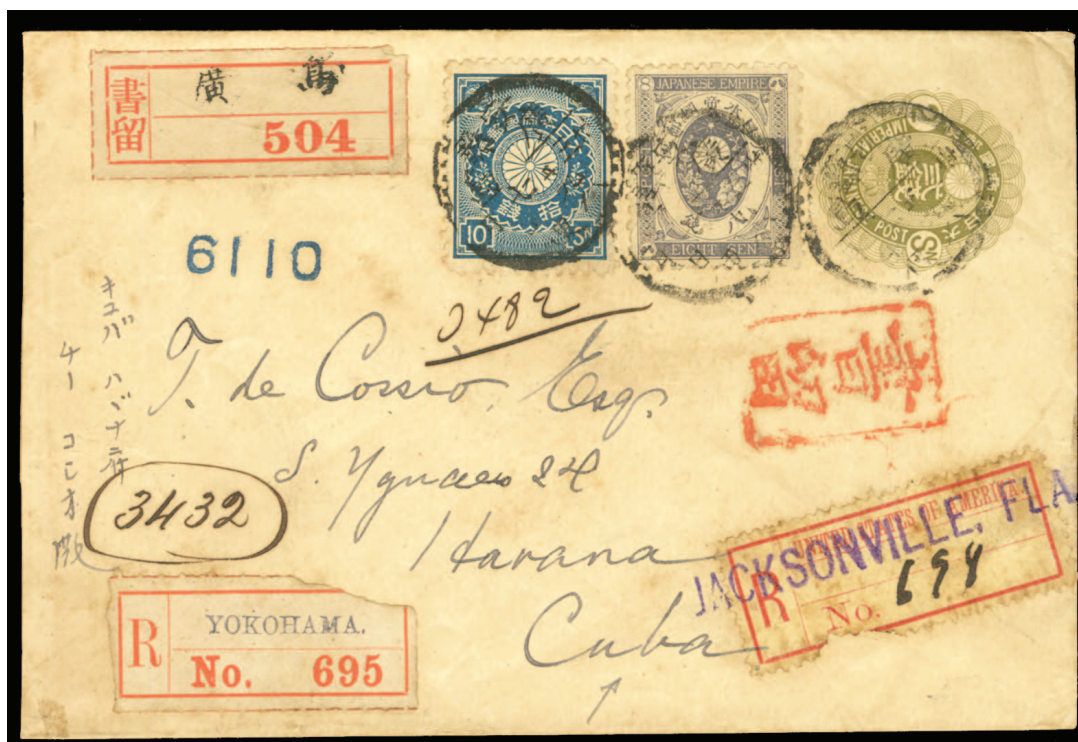 書留
廣島
504
10 Sn
8 JAPANESE EMPIRE
EIGHT SEN
IMPERIAL JAPANESE POST
大日本
SN
6110
3482
キユバ ハバナ府
チー コシオ殿
T. de Cossio, Esq.
S. Ygnacio 24
Havana
Cuba
3432
R YOKOHAMA.
No. 695
UNITED STATES OF AMERICA.
JACKSONVILLE, FLA.
R No. 698